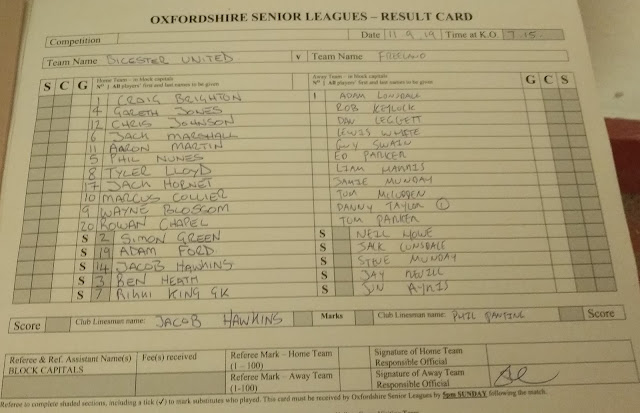 OXFORDSHIRE SENIOR LEAGUES – RESULT CARD
Competition Date 11.9.19 Time at K.O. 7.15
Team Name BICESTER UNITED v Team Name FREELAND
S C G Home Team – in block capitals Away Team – in block capitals G C S
Nº All players' first and last names to be given Nº All players' first and last names to be given
1 CRAIG BRIGHTON 1 ADAM LONSDALE
4 GARETH JONES ROB KEYLOCK
12 CHRIS JOHNSON DAN LEGGETT
6 JACK MARSHALL LEWIS WHITE
11 AARON MARTIN GUY SWAIN
5 PHIL NUNES ED PARKER
8 TYLER LLOYD LIAM HARRIS
17 JACK HORNET JAMIE MUNDAY
10 MARCUS COLLIER TOM
9 WAYNE BLOSSOM DANNY TAYLOR 1
20 ROWAN CHAPEL TOM PARKER
S 2 SIMON GREEN S NEIL HOWE
S 19 ADAM FORD S JACK LONSDALE
S 14 JACOB HAWKINS S STEVE MUNDAY
S 3 BEN HEATH S JAY NEVILL
S 7 RIKKI KING GK S JON AYRIS
Score Club Linesman name: JACOB HAWKINS Marks Club Linesman name: PHIL Score
Referee & Ref. Assistant Name(s) Fee(s) received Referee Mark – Home Team Signature of Home Team
BLOCK CAPITALS (1 – 100) Responsible Official
Referee Mark – Away Team Signature of Away Team
(1-100) Responsible Official
Referee to complete shaded sections, including a tick (✓) to mark substitutes who played. This card must be received by Oxfordshire Senior Leagues by 5pm SUNDAY following the match.